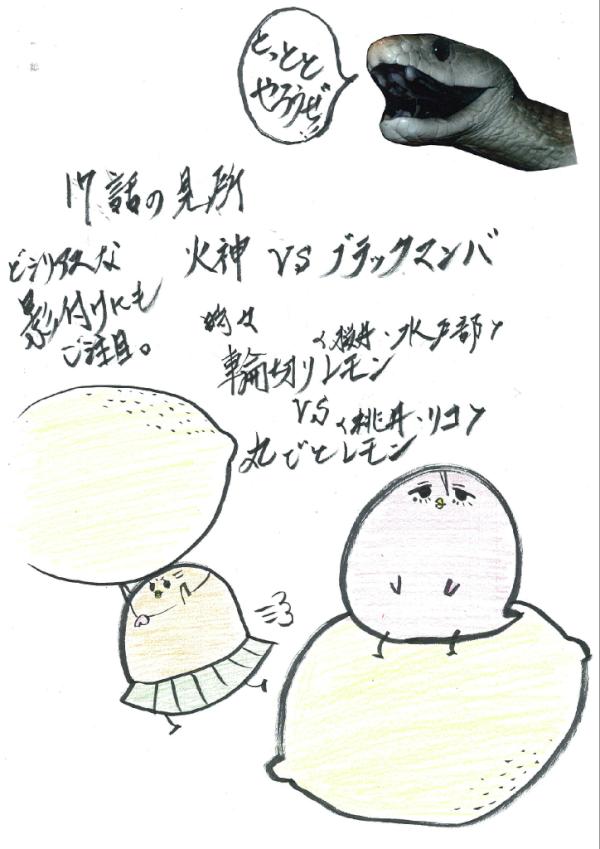 とっとと
やろうぜ!!
17話の見所
火神 VS ブラックマンバ
ビジュアスな
影付けにも
ご注目。
特に
〈桜井・水戸部〉
輪切りレモン
VS
〈桃井・リコ〉
丸ごとレモン